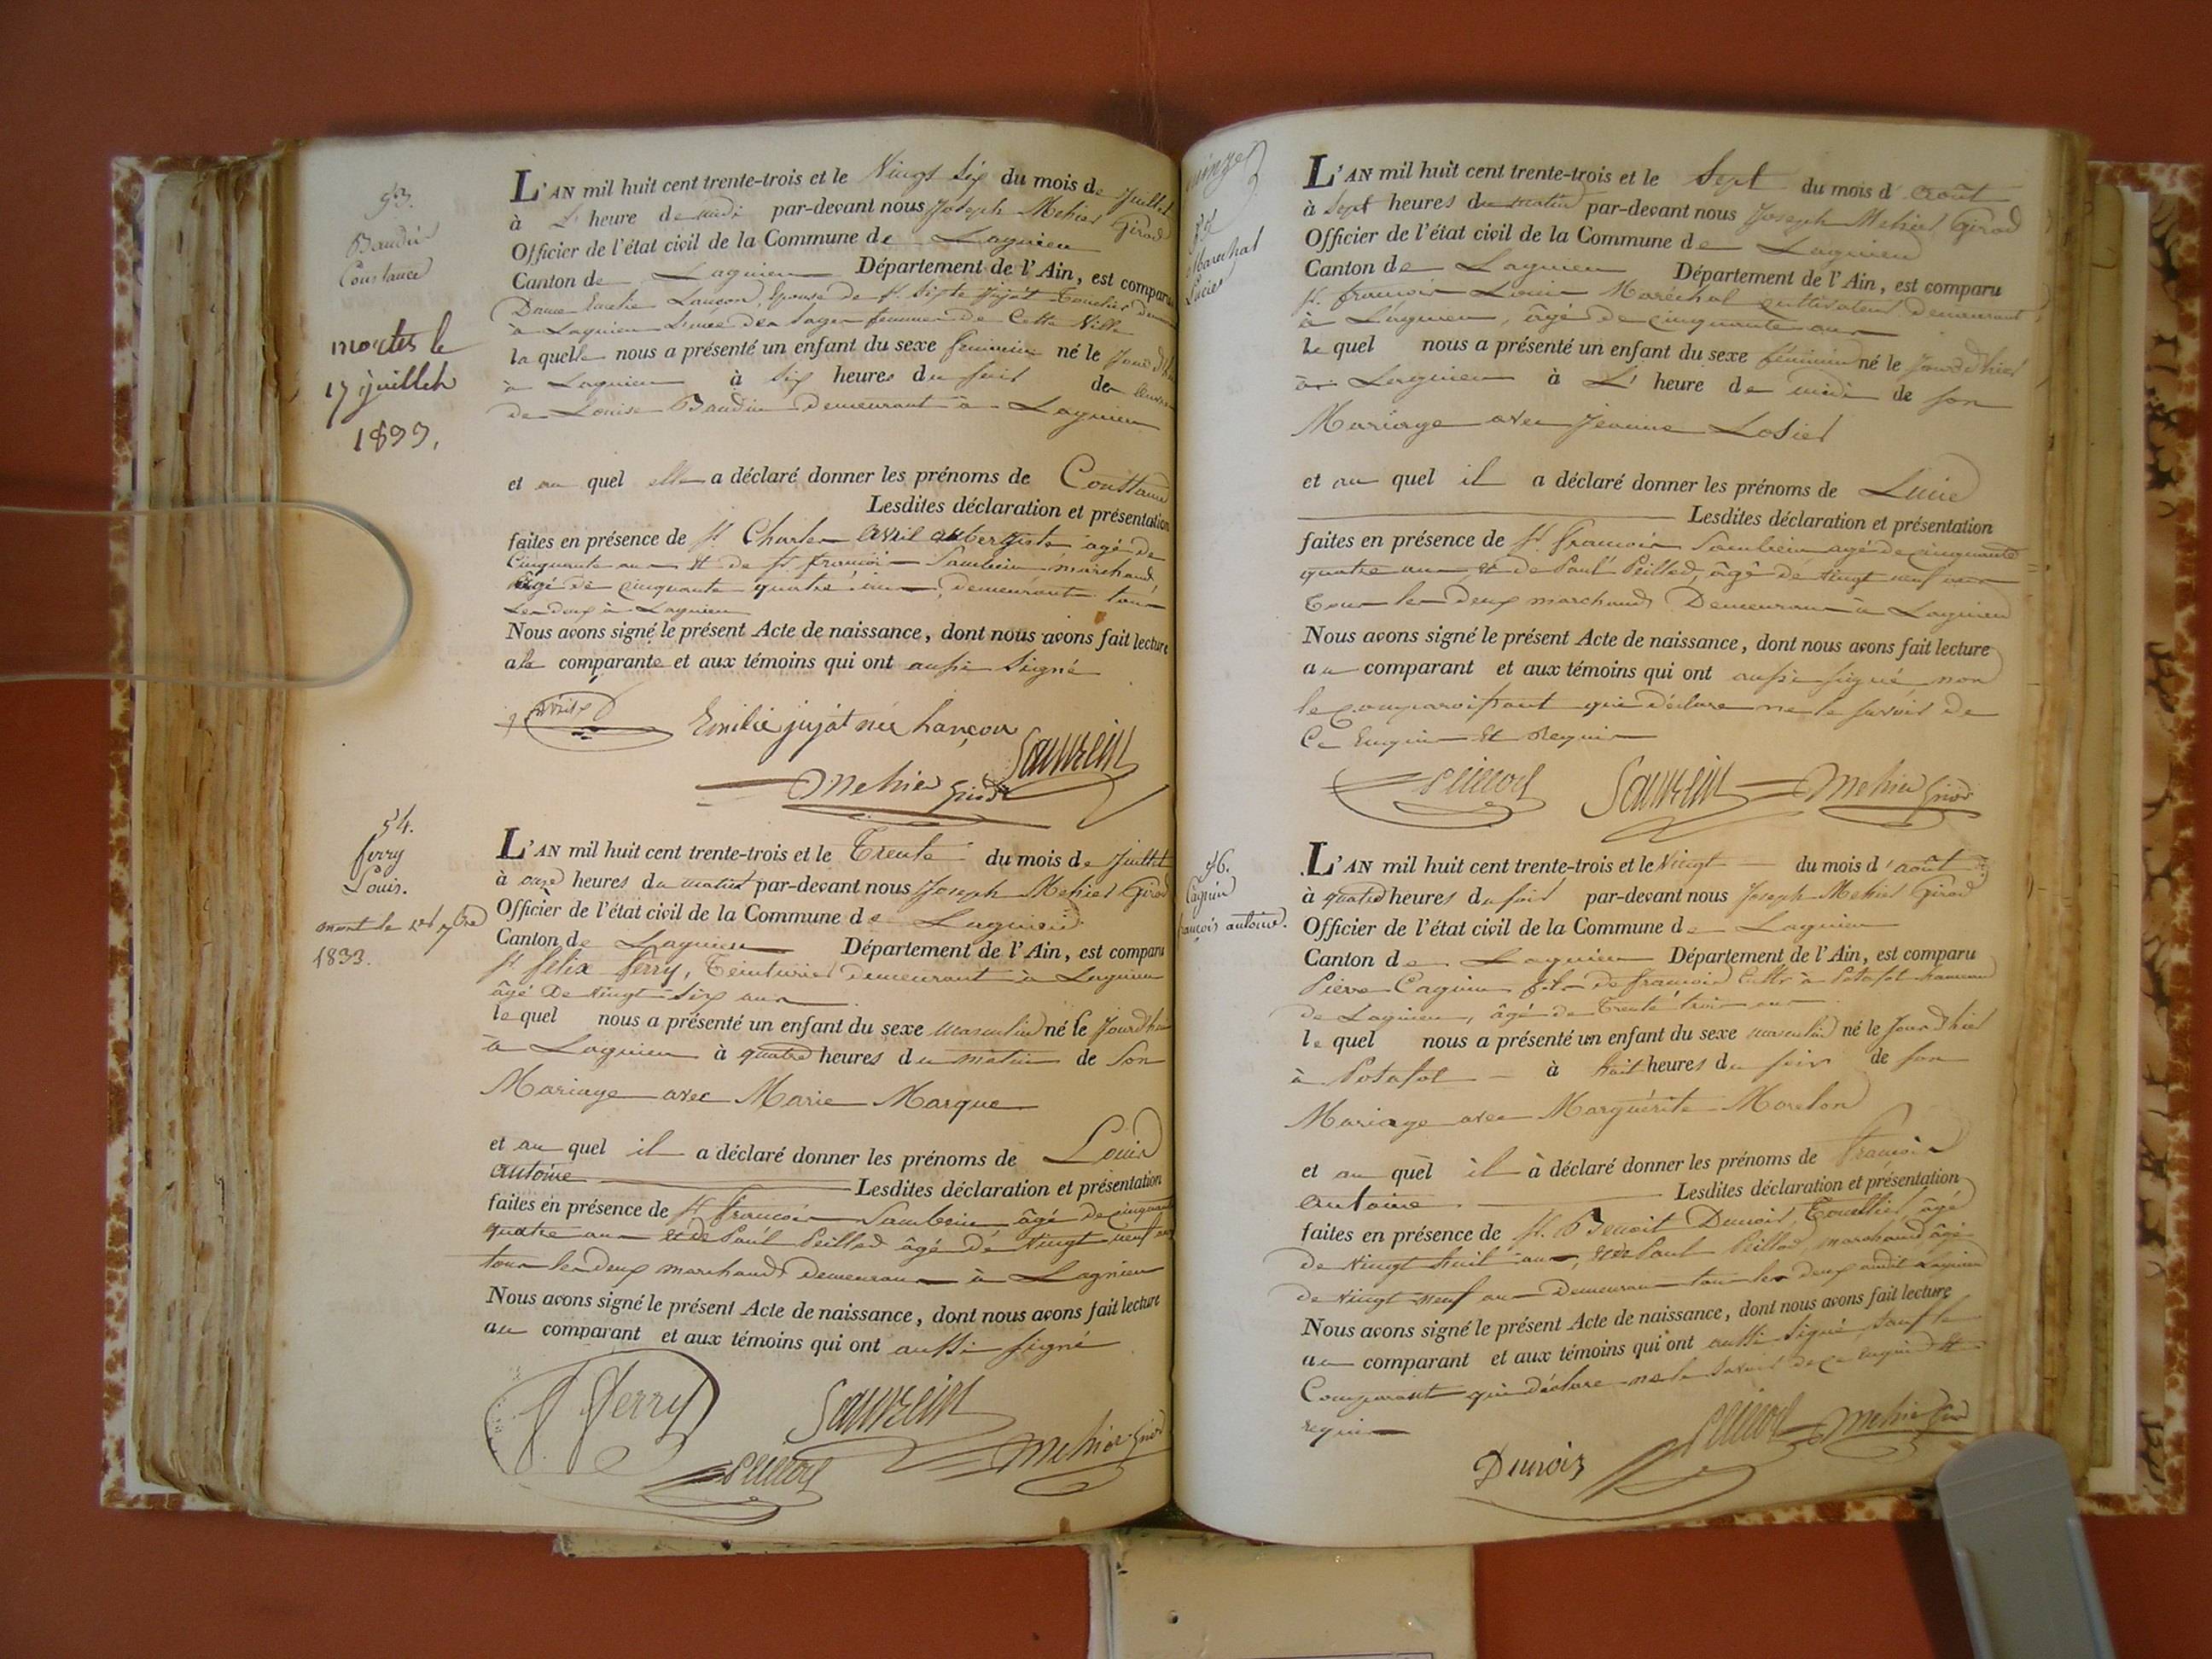 53.
Baudin
Constance
morte le
17 juillet
1899.
L'AN mil huit cent trente-trois et le Vingt Six du mois de Juillet
à L' heure de midi par-devant nous Joseph Mehier Girod
Officier de l'état civil de la Commune de Lagnieu
Canton de Lagnieu Département de l'Ain, est comparu
Dame Emelie Lançon, Epouse de Sr. Sixte Jujat
à Lagnieu L'une des Sages femmes de Cette Ville
laquelle nous a présenté un enfant du sexe feminin né le Jour d'hier
à Lagnieu à Six heures du soir de
de Louise Baudin Demeurant à Lagnieu
et au quel elle a déclaré donner les prénoms de Constance
Lesdites déclaration et présentation
faites en présence de Sr Charles Avril aubergiste agé de
Cinquante ans et de Sr. françois Sambein marchand
âgé de cinquante quatre ans, demeurant tous
Les deux à Lagnieu
Nous avons signé le présent Acte de naissance, dont nous avons fait lecture
a la comparante et aux témoins qui ont aussi Signé
Avril
Emilie jujat née Lançon
Mehier Girod
54.
ferry
Louis.
mort le 7bre
1833.
L'AN mil huit cent trente-trois et le Trente du mois de Juillet
à onze heures du matin par-devant nous Joseph Mehier Girod
Officier de l'état civil de la Commune de Lagnieu
Canton de Lagnieu Département de l'Ain, est comparu
Sr felix ferry, Teinturier demeurant à Lagnieu
âgé De Vingt-Six ans
lequel nous a présenté un enfant du sexe masculin né le Jourd'hui
à Lagnieu à quatre heures du matin de Son
Mariage avec Marie Marque
et au quel il a déclaré donner les prénoms de Louis
antoine Lesdites déclaration et présentation
faites en présence de Sr françois Sambein âgé de cinquante
quatre ans et de Paul Peillod âgé de Vingt neuf ans
tous les deux marchands demeurans à Lagnieu
Nous avons signé le présent Acte de naissance, dont nous avons fait lecture
au comparant et aux témoins qui ont aussi signé
F Ferry
Peillod
Mehier Girod
55
Marechal
Lucie
L'AN mil huit cent trente-trois et le Sept du mois d'août
à Sept heures du matin par-devant nous Joseph Mehier Girod
Officier de l'état civil de la Commune de Lagnieu
Canton de Lagnieu Département de l'Ain, est comparu
Sr. françois Louis Maréchal cultivateur demeurant
à Lagnieu, âgé de cinquante ans
le quel nous a présenté un enfant du sexe féminin né le Jour d'hier
à Lagnieu à L' heure de midi de son
Mariage avec Jeanne Losier
et au quel il a déclaré donner les prénoms de Lucie
Lesdites déclaration et présentation
faites en présence de Sr. françois Sambein agé de cinquante
quatre ans, et de Paul Peillod, âgé de vingt neuf ans
Tous les deux marchands Demeurans à Lagnieu
Nous avons signé le présent Acte de naissance, dont nous avons fait lecture
au comparant et aux témoins qui ont aussi signé non
le comparoissant qui déclare ne le savoir de
Ce Enquis et Requis
Peillod
Mehier Girod
56.
Cagnin
françois antoine.
L'AN mil huit cent trente-trois et le Vingt du mois d'août
à quatre heures du soir par-devant nous Joseph Mehier Girod
Officier de l'état civil de la Commune de Lagnieu
Canton de Lagnieu Département de l'Ain, est comparu
Pierre Cagnin fils de françois Cultr à Potafol hameau
de Lagnieu, âgé de Trente trois ans
lequel nous a présenté un enfant du sexe masculin né le Jour d'hier
à Potafol à huit heures du soir de son
Mariage avec Marguérite Morelon
et au quel il à déclaré donner les prénoms de François
Antoine Lesdites déclaration et présentation
faites en présence de Sr. Benoit Dunoir, âgé
de Vingt huit ans, et de Paul Peillod, marchand âgé
de Vingt neuf ans Demeurans tous les deux audit Lagnieu
Nous avons signé le présent Acte de naissance, dont nous avons fait lecture
au comparant et aux témoins qui ont aussi Signé, Sauf le
Comparant qui déclare ne le savoir de ce enquis et
requis
Dunoir
Peillod
Mehier Girod